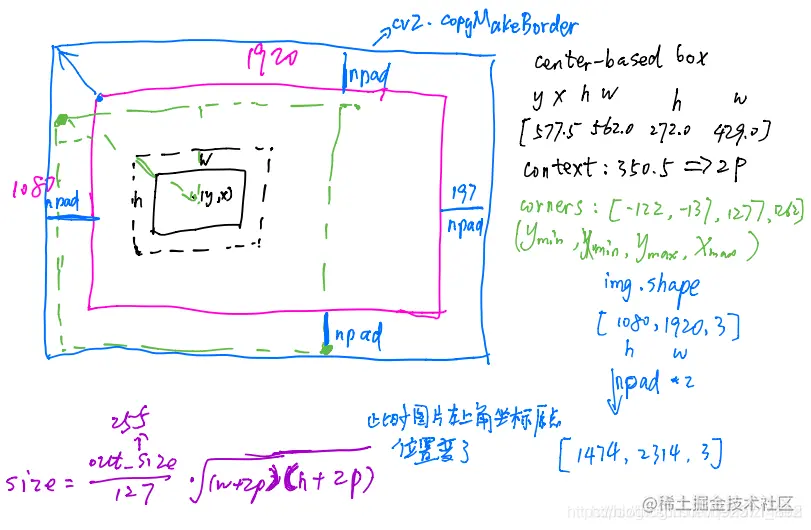 cv2.copyMakeBorder
1920
npad
center-based box
y x h w h w
[577.5 562.0 272.0 429.0]
context: 350.5 => 2P
w
1080
npad
h
(y,x)
197
npad
corners: [-122, -137, 1277, 1262]
(Ymin, Xmin, Ymax, Xmax)
img.shape
[1080, 1920, 3]
h w
npad
npad *2
255
out_size
size = ———— · √(w+2p)(h+2p)
127
此时图片左上角坐标原点
位置变了
[1474, 2314, 3]
@稀土掘金技术社区